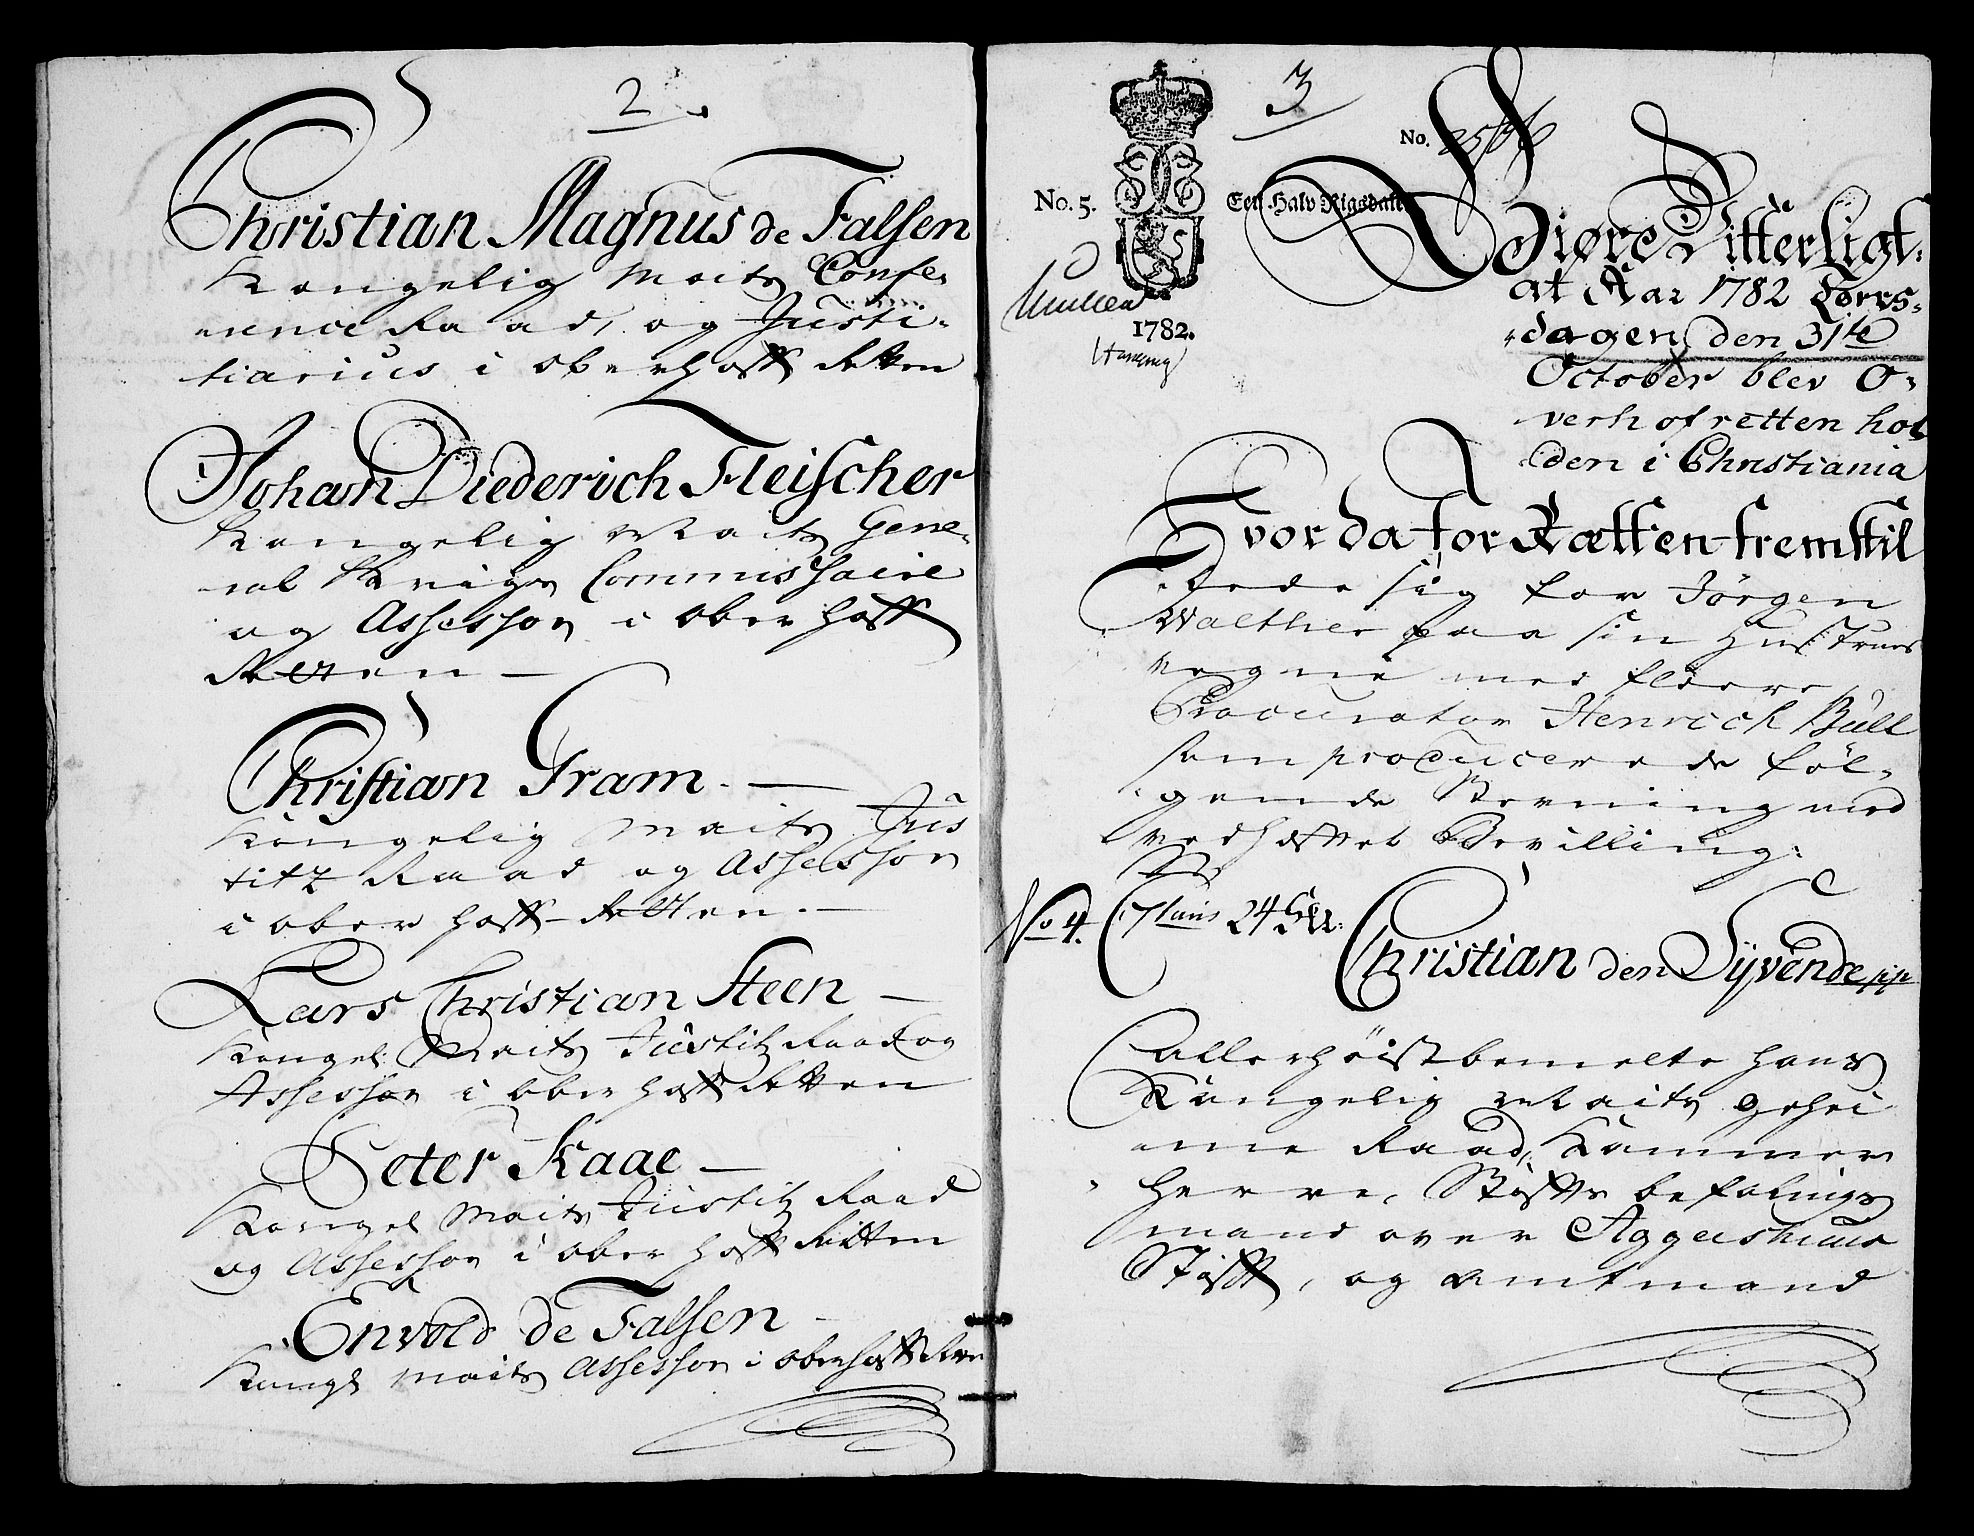 2
Christian Magnus de Falsen
Kongelig Maits Confe-
rence Raad, og Justi-
tiarius i Oberhoff Retten
Johan Diederich Fleischer
Kongelig Maits Gene-
ral Krigs Commissaire
og Assessor i Ober Hoff
Retten —
Christian Gram. —
Kongelig Maits Jus
titz Raad og Assessor
i Ober Hoff-Retten. —
Lars Christian Steen —
Kongel: Maits Justitz Raad og
Assessor i Ober Hoff Retten
Peter Kaae —
Kongel Maits Justitz Raad
og Assessor i Ober Hoff Retten
Envold de Falsen —
Kongl Maits Assessor i Oberhoff Retten
3
No.
No. 5.
Een Halv Rigsdaler
1782.
Giøre Vitterligt:
at Aar 1782 Torrs-
dagen den 31te
October blev O-
verhofretten hol
den i Christiania
Hvor da for Rætten fremstil
lede sig for Jörgen
Walther paa sin Hustrues
vegne med fleere
Procurator Henrich Bull
som producerede föl-
gende Stevning med
vedhæftet Bevilling:
No 4. 24 Sk:
Christian den Syvende pp
Allerhöistbemelte Hans
Kongelig Maits Gehei
me Raad, Kammer
Herre, Stifts befalings
mand over Aggershuus
Stift, og Amtmand